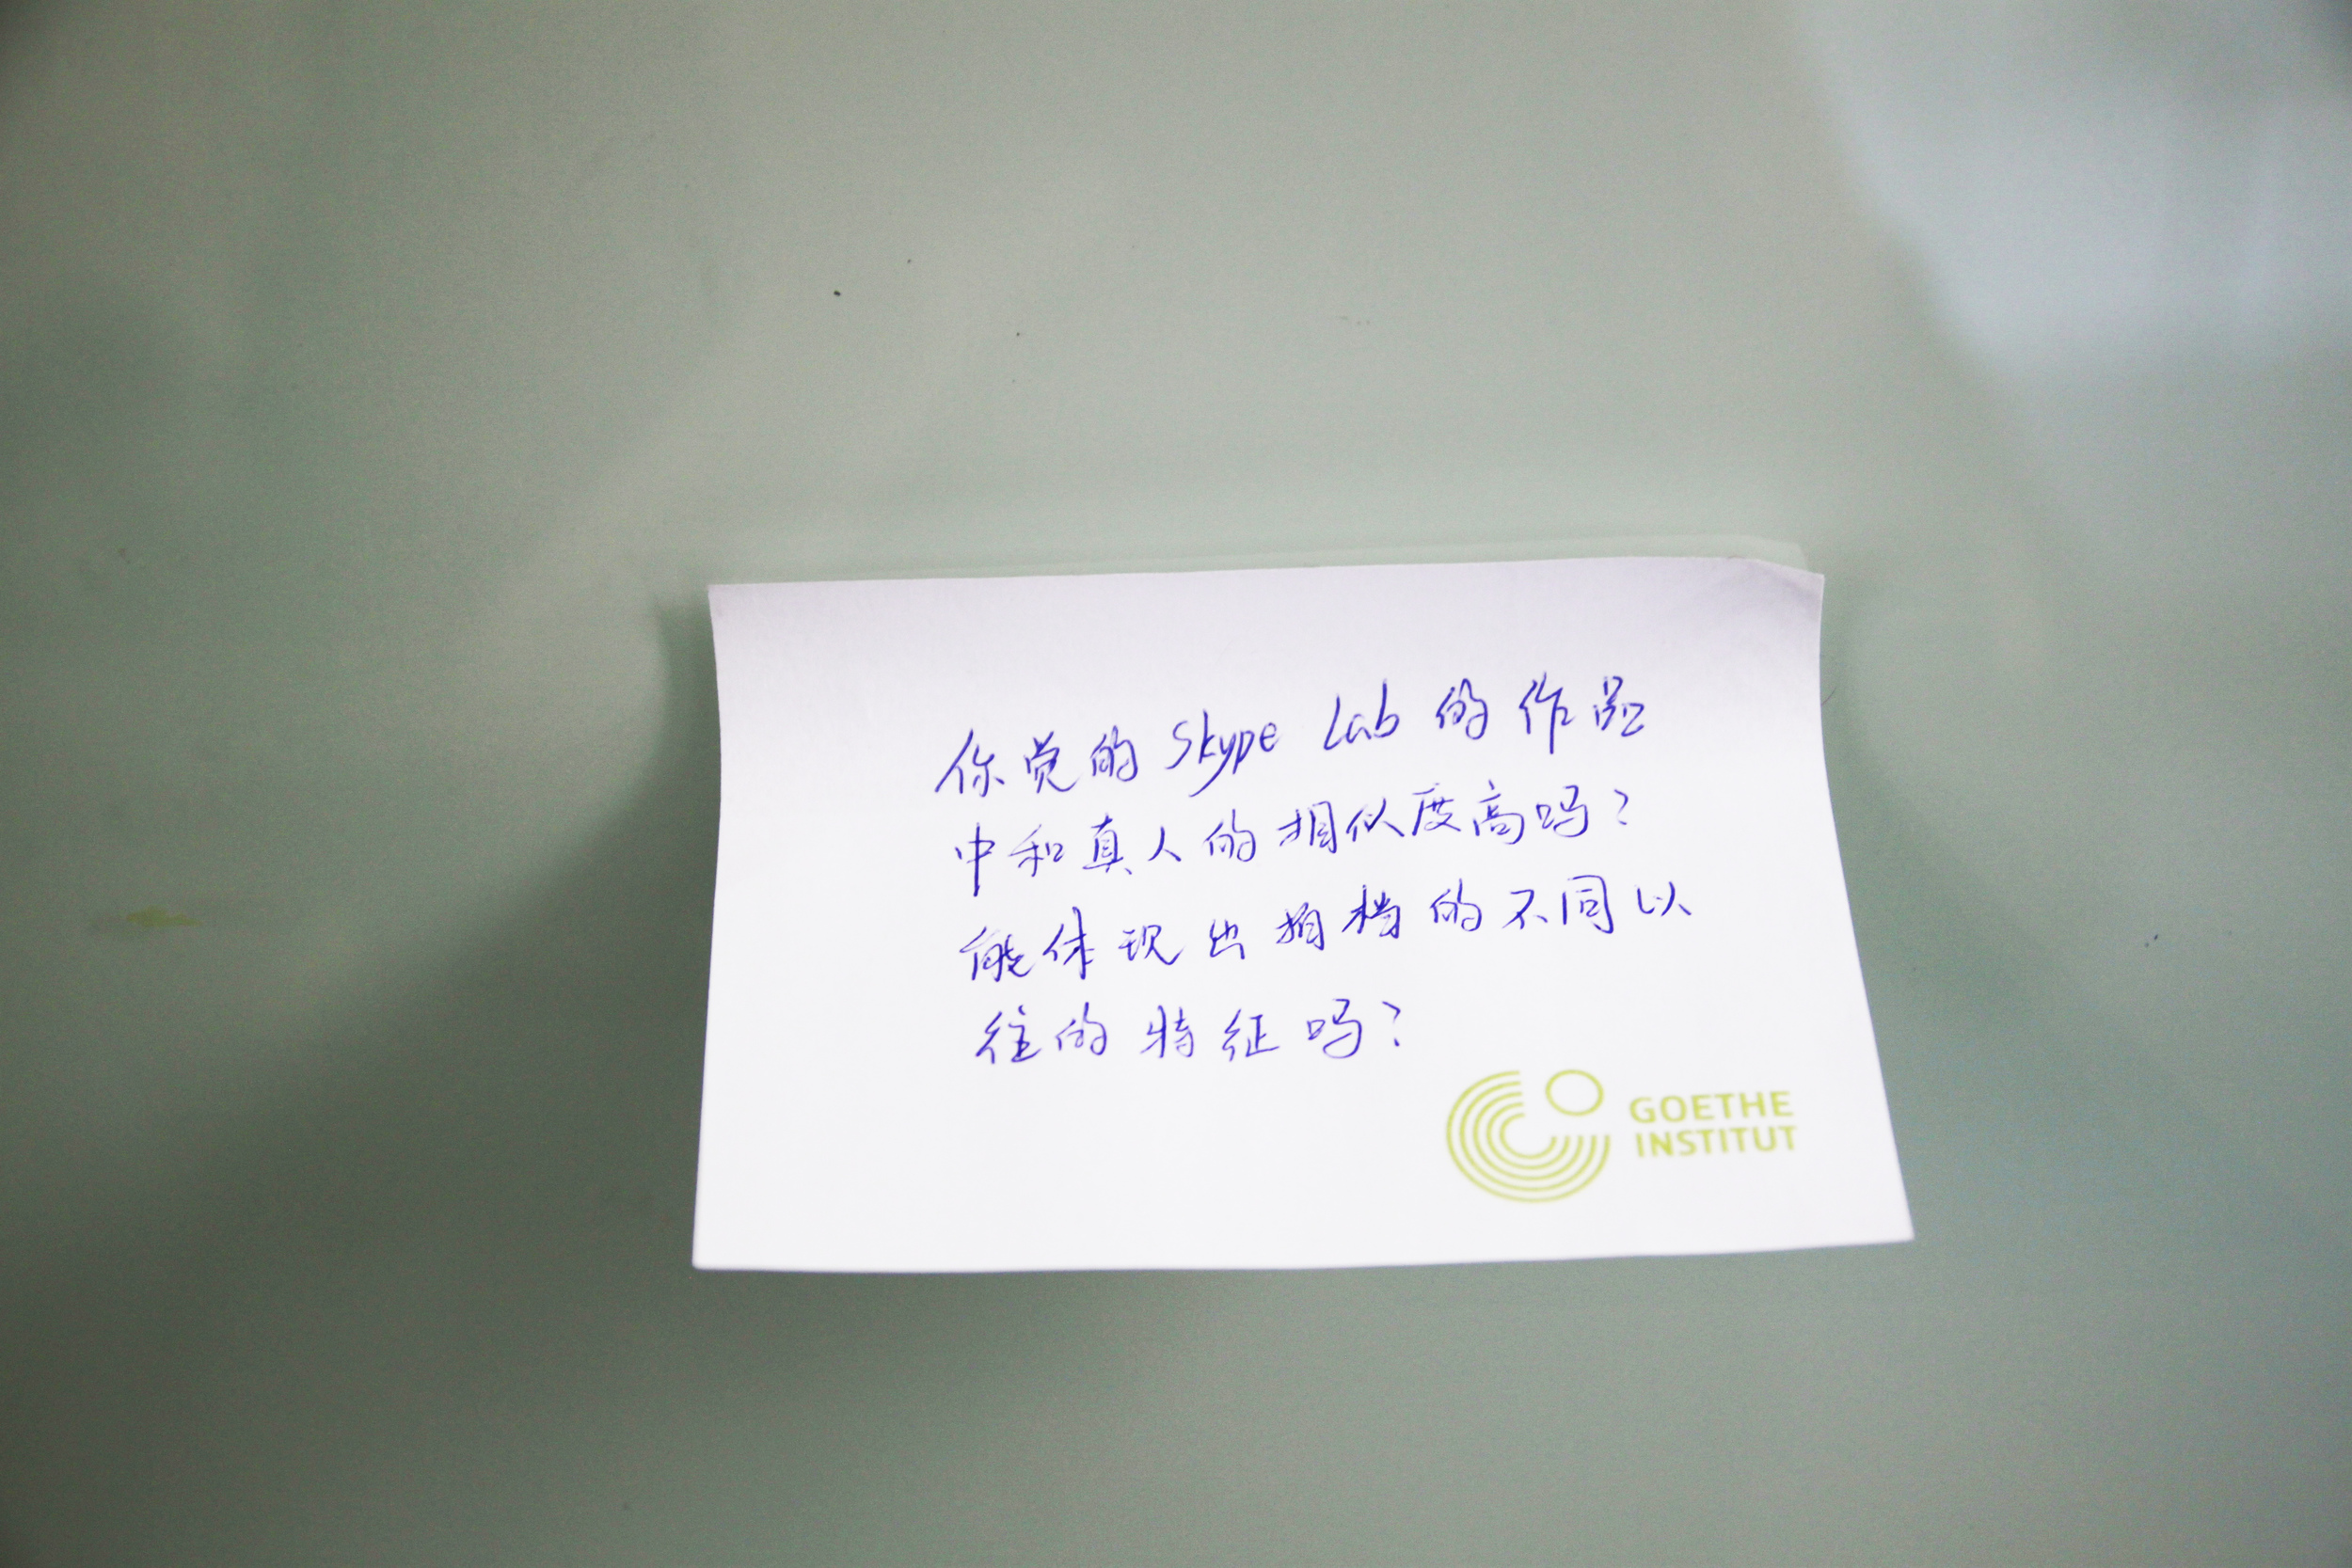 你觉的 Skype Lab 的作品
中和真人的相似度高吗？
能体现出拍档的不同以
往的特征吗？
GOETHE
INSTITUT